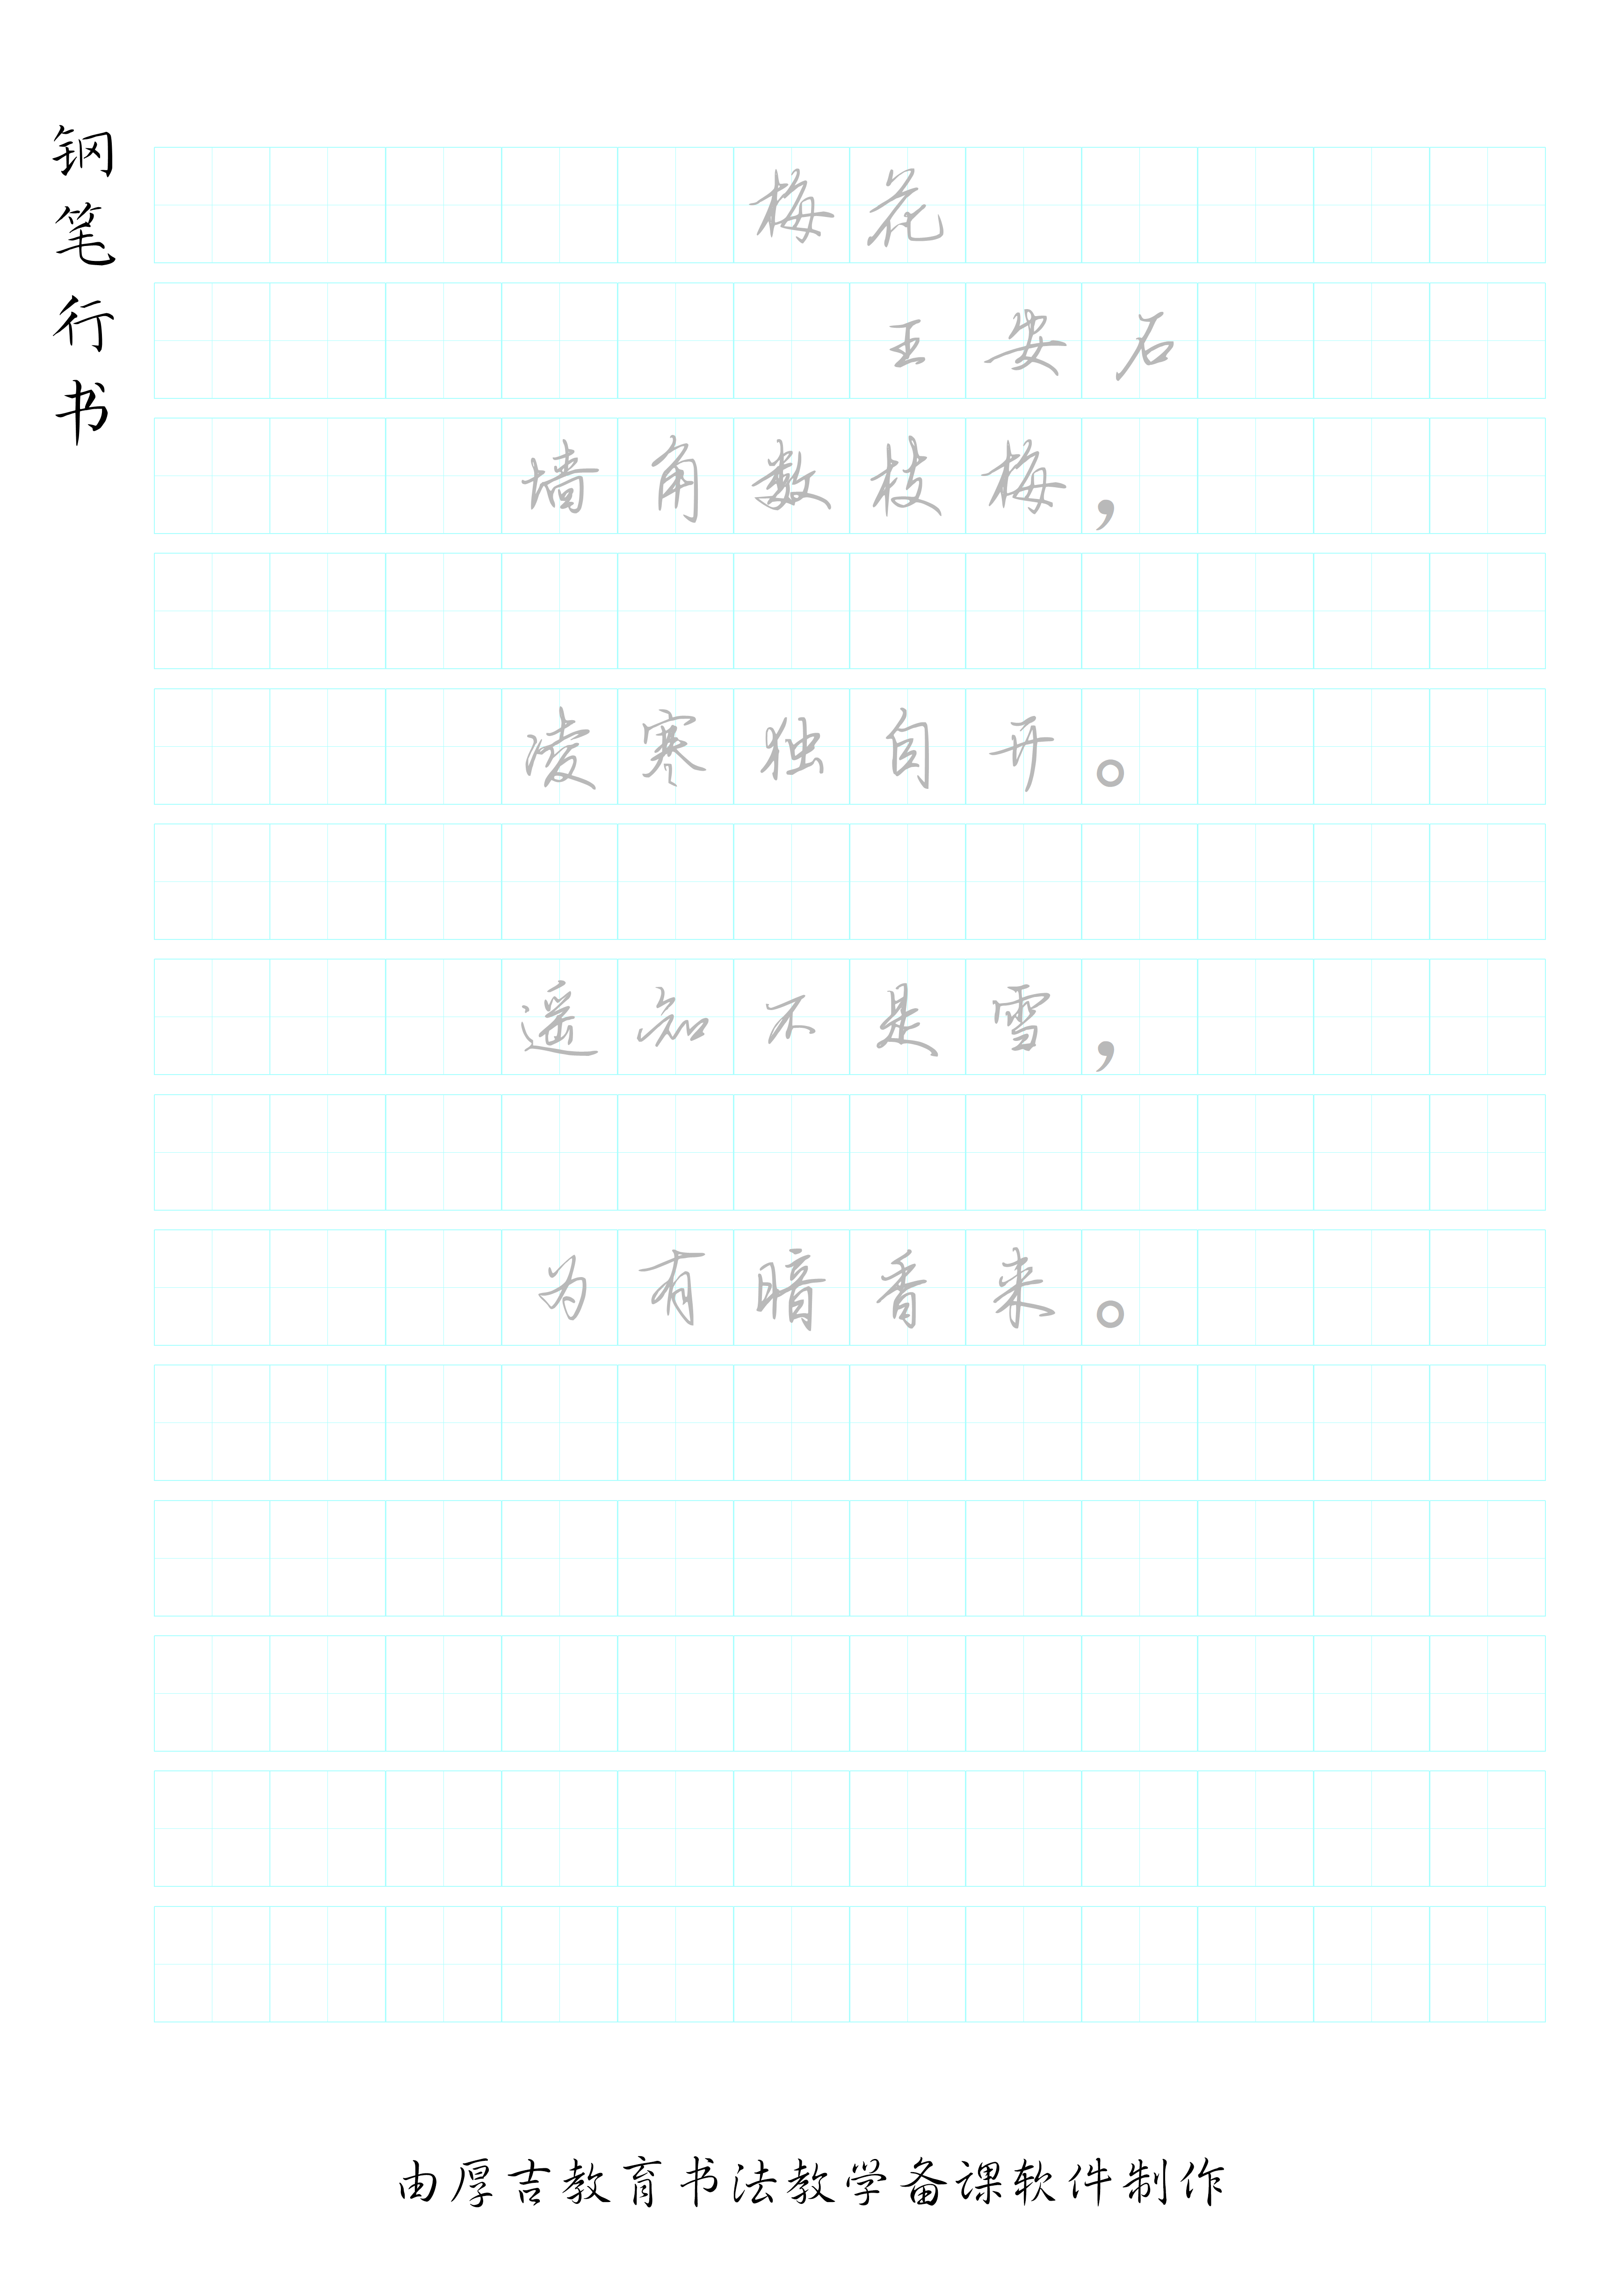 钢笔行书
梅花
王安石
墙角数枝梅，
凌寒独自开。
遥知不是雪，
为有暗香来。
由厚吉教育书法教学备课软件制作